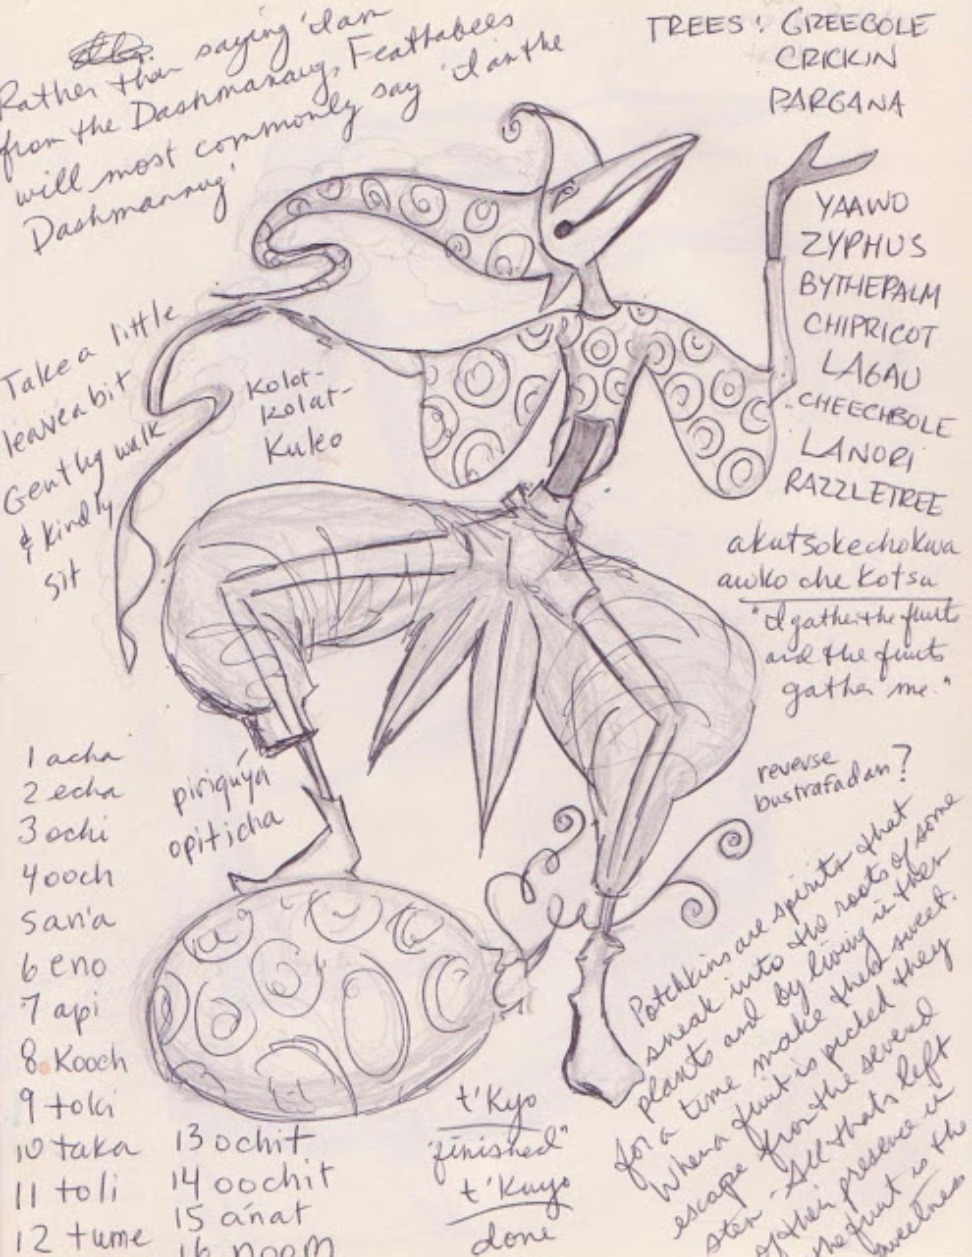 Rather than saying 'I am
from the Dashmanaug, Feathabees
will most commonly say 'I am the
Dashmannug'
TREES: GREEGOLE
CRICKIN
PARGANA
YAAWO
ZYPHUS
BYTHEPALM
CHIPRICOT
LAGAU
CHEECHBOLE
LANORI
RAZZLETREE
Take a little
leave a bit
Gently walk
& kindly
sit
Kolot-
Kolat-
Kuleo
akutsokechokwa
awko che kotsu
"I gather the fruits
and the fruits
gather me."
reverse
bustrafadan?
piriquya
opiticha
1 acha
2 echa
3 ochi
4 ooch
5 an'a
6 eno
7 api
8. Kooch
9 toki
10 taka
11 toli
12 tume
13 ochit
14 oochit
15 anat
16 noom
t'Kyo
"finished"
t'Kuyo
done
Potchkins are spirits that
sneak into the roots of some
plants and by living in them
for a time make them sweet.
When a fruit is picked they
escape from the severed
stem. All that's left
of their presence in
the fruit is the
sweetness